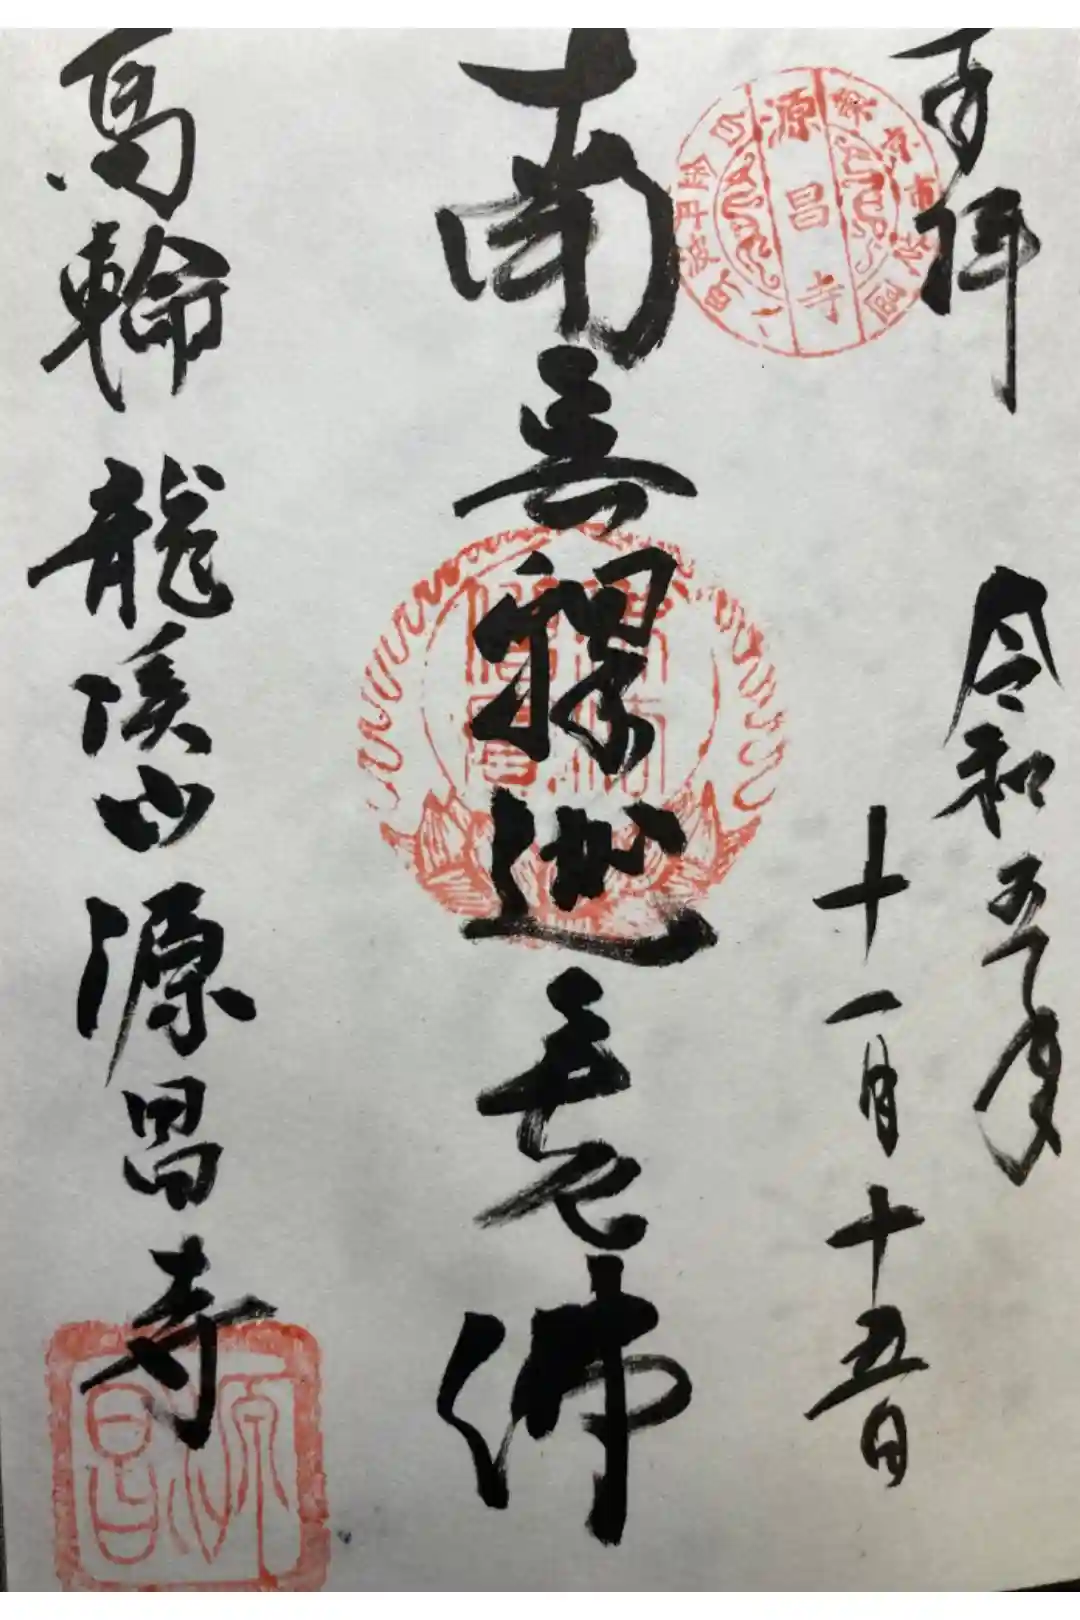 奉拝
令和五年
十一月十五日
源昌寺
南無釋迦牟尼佛
高輪 龍溪山 源昌寺
源昌